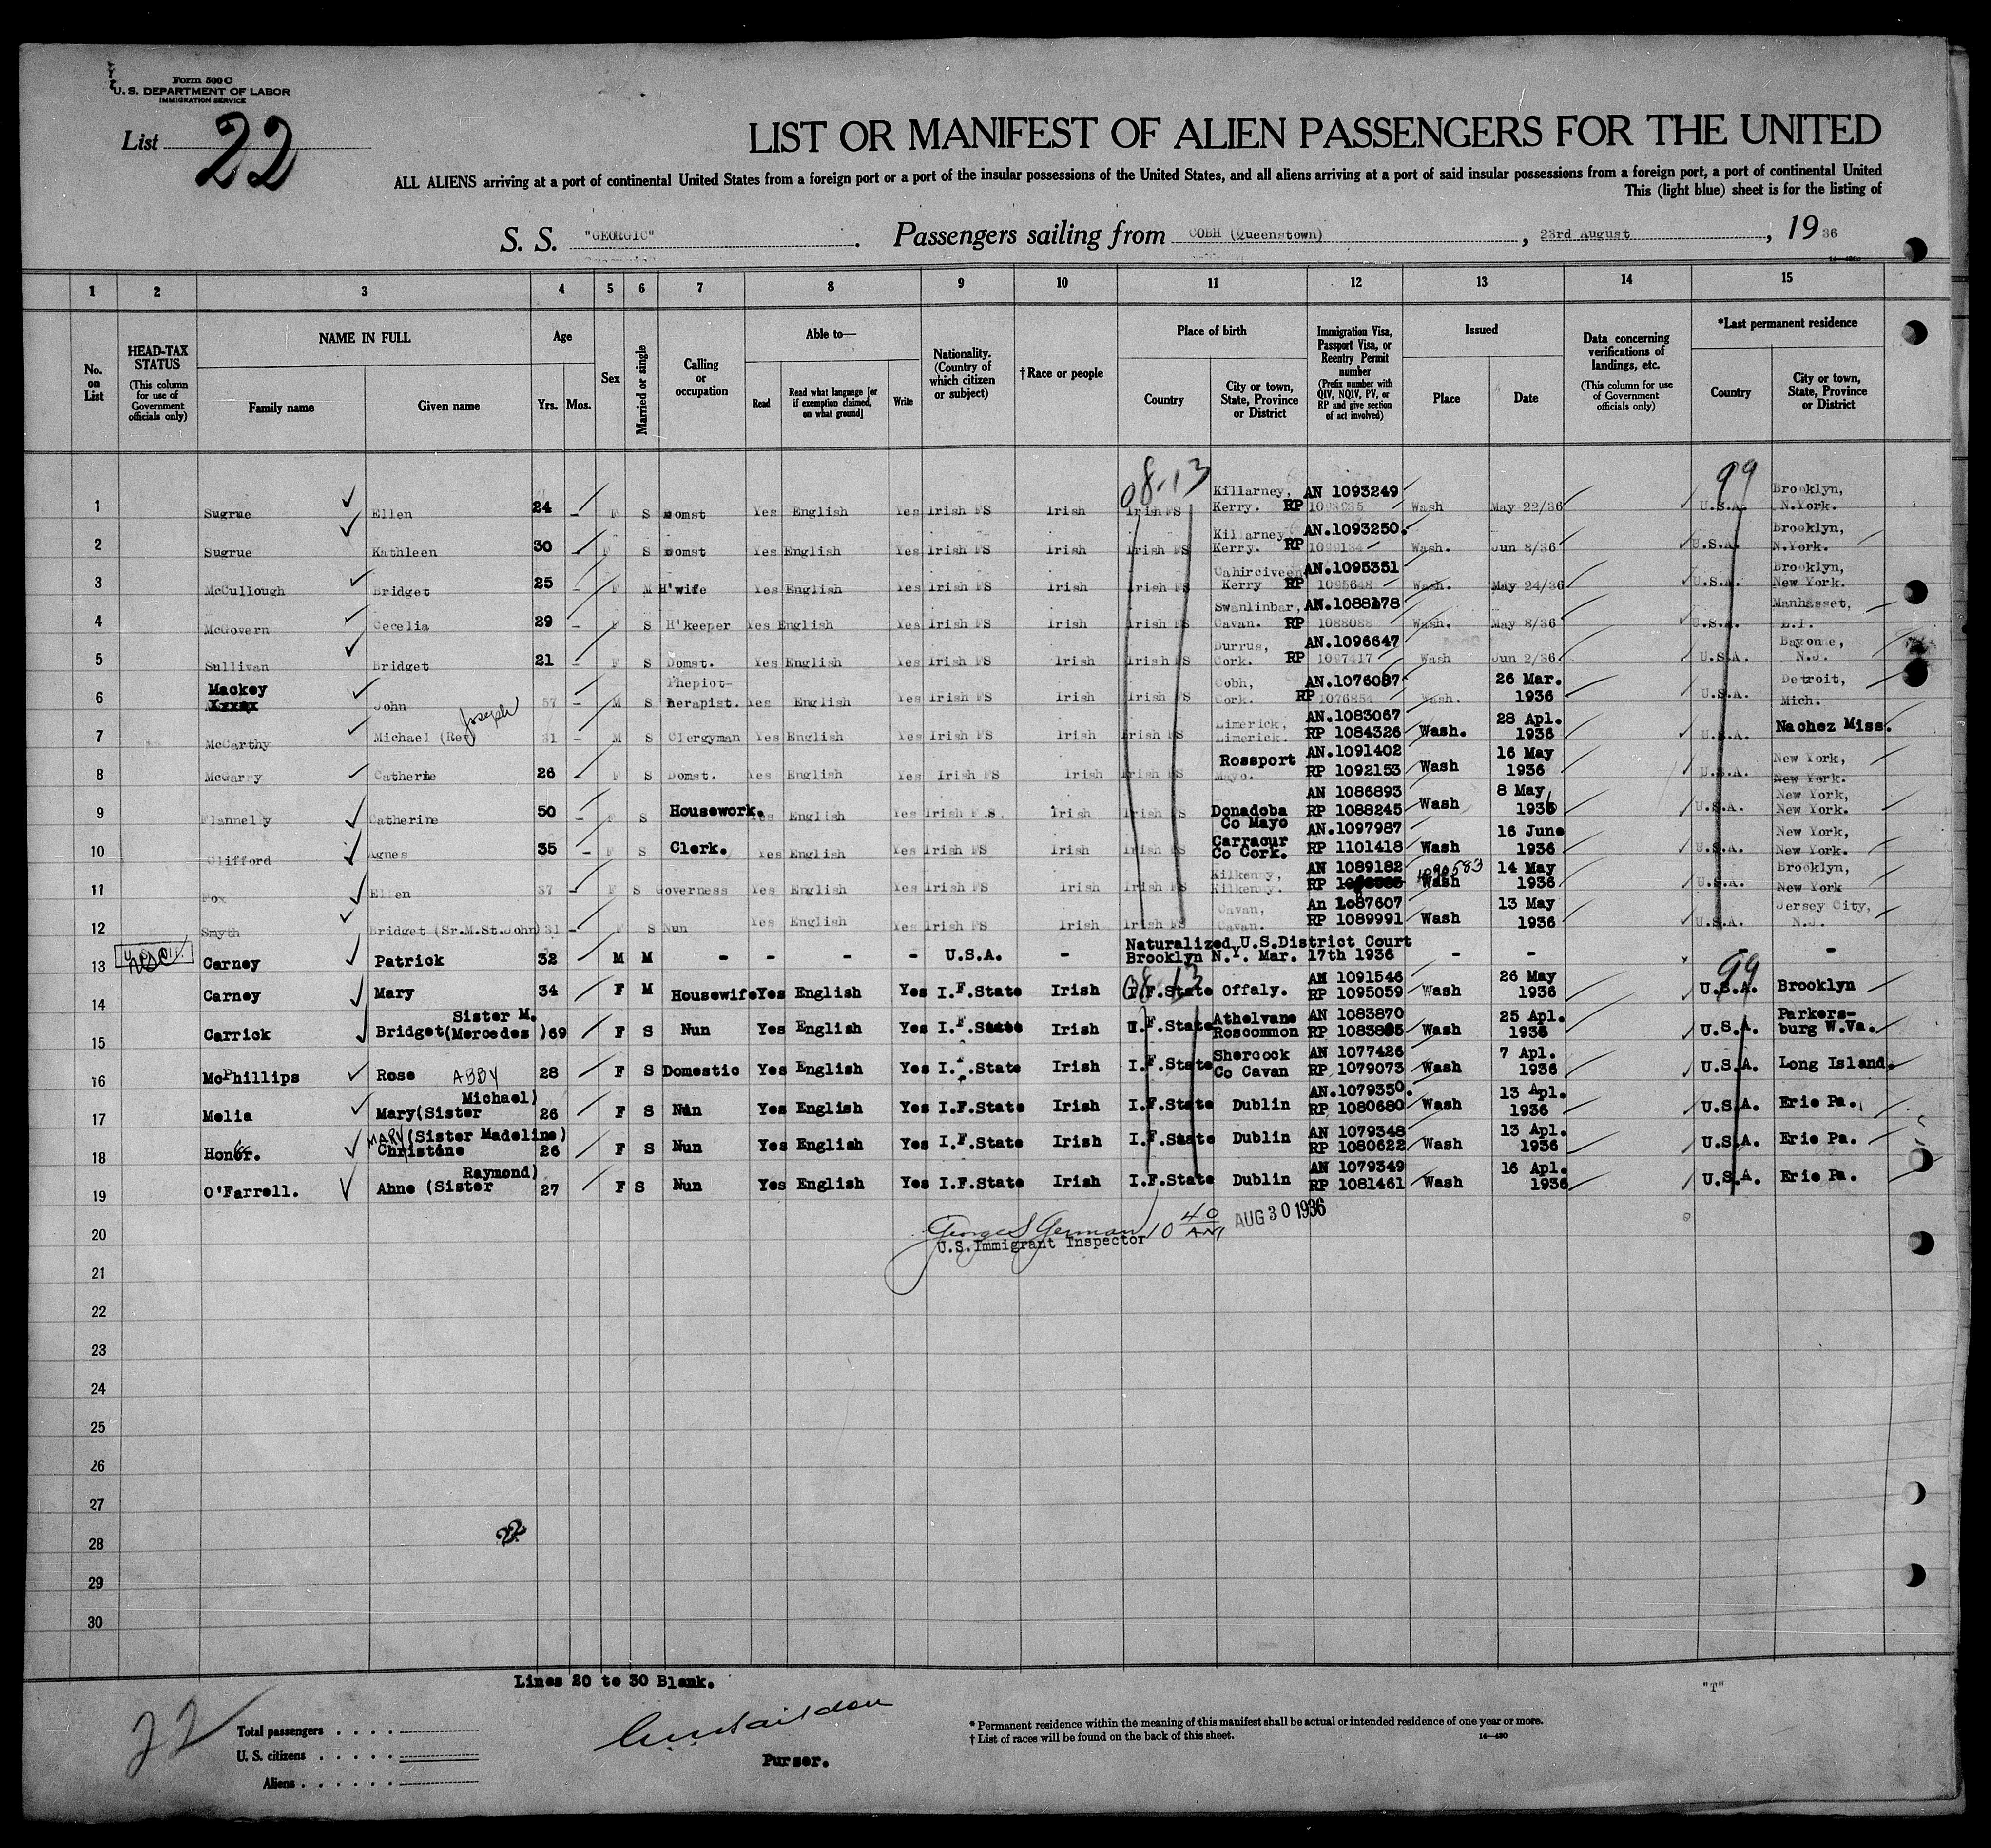 Form 500 C
U. S. DEPARTMENT OF LABOR
IMMIGRATION SERVICE
List 22
LIST OR MANIFEST OF ALIEN PASSENGERS FOR THE UNITED
ALL ALIENS arriving at a port of continental United States from a foreign port or a port of the insular possessions of the United States, and all aliens arriving at a port of said insular possessions from a foreign port, a port of continental United
This (light blue) sheet is for the listing of
S. S. "GEORGIC". Passengers sailing from COBH (Queenstown), 23rd August, 19 36
1 2 3 4 5 6 7 8 9 10 11 12 13 14 15
No. on List
HEAD-TAX STATUS (This column for use of Government officials only)
NAME IN FULL
Family name Given name
Age
Yrs. Mos.
Sex
Married or single
Calling or occupation
Able to—
Read Read what language [or if exemption claimed, on what ground] Write
Nationality. (Country of which citizen or subject)
†Race or people
Place of birth
Country City or town, State, Province or District
Immigration Visa, Passport Visa, or Reentry Permit number (Prefix number with QIV, NQIV, PV, or RP and give section of act involved)
Issued
Place Date
Data concerning verifications of landings, etc. (This column for use of Government officials only)
*Last permanent residence
Country City or town, State, Province or District
08-13 99
1 Sugrue Ellen 24 - F S Domst Yes English Yes Irish FS Irish Irish FS Killarney, Kerry. AN 1093249 RP Wash May 22/36 U.S.A. Brooklyn, N.York.
2 Sugrue Kathleen 30 - F S Domst Yes English Yes Irish FS Irish Irish FS Killarney Kerry. AN.1093250. RP Wash. Jun 8/36 U.S.A. Brooklyn, N.York.
3 McCullough Bridget 25 - F M H'wife Yes English Yes Irish FS Irish Irish FS Cahirciveen Kerry AN.1095351 RP 1095648 Wash. May 24/36 U.S.A. Brooklyn, New York.
4 McGovern Cecelia 29 - F S H'keeper Yes English Yes Irish FS Irish Irish FS Swanlinbar, Cavan. AN.1088178 RP 1088088 Wash. May 8/36 U.S.A. Manhasset, L.I.
5 Sullivan Bridget 21 - F S Domst. Yes English Yes Irish FS Irish Irish FS Durrus, Cork. AN.1096647 RP 1097417 Wash Jun 2/36 U.S.A. Bayonne, N.J.
6 Mackey John 57 - M S Phepiot-herapist. Yes English Yes Irish FS Irish Irish FS Cobh, Cork. AN.1076087 RP 1076854 Wash. 26 Mar. 1936 U.S.A. Detroit, Mich.
7 McCarthy Michael (Rev Joseph 31 - M S Clergyman Yes English Yes Irish FS Irish Irish FS Limerick, Limerick. AN.1083067 RP 1084326 Wash. 28 Apl. 1936 U.S.A. Nachez Miss.
8 McGarry Catherine 26 - F S Domst. Yes English Yes Irish FS Irish Irish FS Rossport Mayo. AN.1091402 RP 1092153 Wash 16 May 1936 U.S.A. New York, New York.
9 Flannelly Catherine 50 - F S Housework. Yes English Yes Irish F.S. Irish Irish FS Donadoba Co Mayo AN 1086893 RP 1088245 Wash 8 May 1936 U.S.A. New York, New York.
10 Clifford Agnes 35 - F S Clerk. Yes English Yes Irish FS Irish Irish FS Carracur Co Cork. AN.1097987 RP 1101418 Wash 16 June 1936 U.S.A. New York, New York.
11 Fox Ellen 37 - F S Governess Yes English Yes Irish FS Irish Irish FS Kilkenny, Kilkenny. AN 1089182 RP 1090583 Wash 14 May 1936 U.S.A. Brooklyn, New York
12 Smyth Bridget (Sr.M.St.John) 31 - F S Nun Yes English Yes Irish FS Irish Irish FS Cavan, Cavan. An 1087607 RP 1089991 Wash 13 May 1936 U.S.A. Jersey City, N.J.
13 Carney Patrick 32 M M - - - - U.S.A. - Naturalized U.S.District Court Brooklyn N.Y. Mar. 17th 1936 - - - -
08-13 99
14 Carney Mary 34 F M Housewife Yes English Yes I.F.State Irish I.F.State Offaly. AN 1091546 RP 1095059 Wash 26 May 1936 U.S.A. Brooklyn
15 Carrick Bridget (Sister M. Mercedes ) 69 F S Nun Yes English Yes I.F.State Irish I.F.State Athelvane Roscommon AN 1083870 RP 1083885 Wash 25 Apl. 1936 U.S.A. Parkers-burg W.Va.
16 McPhillips Rose ABBY 28 F S Domestic Yes English Yes I.F.State Irish I.F.State Shercock Co Cavan AN 1077426 RP 1079073 Wash 7 Apl. 1936 U.S.A. Long Island.
17 Melia Mary(Sister Michael) 26 F S Nun Yes English Yes I.F.State Irish I.F.State Dublin AN.1079350. RP 1080680 Wash 13 Apl. 1936 U.S.A. Erie Pa.
18 Honor. MARY Christine (Sister Madeline) 26 F S Nun Yes English Yes I.F.State Irish I.F.State Dublin AN 1079348 RP 1080622 Wash 13 Apl. 1936 U.S.A. Erie Pa.
19 O'Farrell. Anne (Sister Raymond) 27 F S Nun Yes English Yes I.F.State Irish I.F.State Dublin AN 1079349 RP 1081461 Wash 16 Apl. 1936 U.S.A. Erie Pa.
20 George S German 10 40 AM AUG 30 1936
U.S.Immigrant Inspector
21
22
23
24
25
26
27
28
29
30
Lines 20 to 30 Blank.
"T"
22
Total passengers
U. S. citizens
Aliens
Purser.
* Permanent residence within the meaning of this manifest shall be actual or intended residence of one year or more.
† List of races will be found on the back of this sheet.
14—430